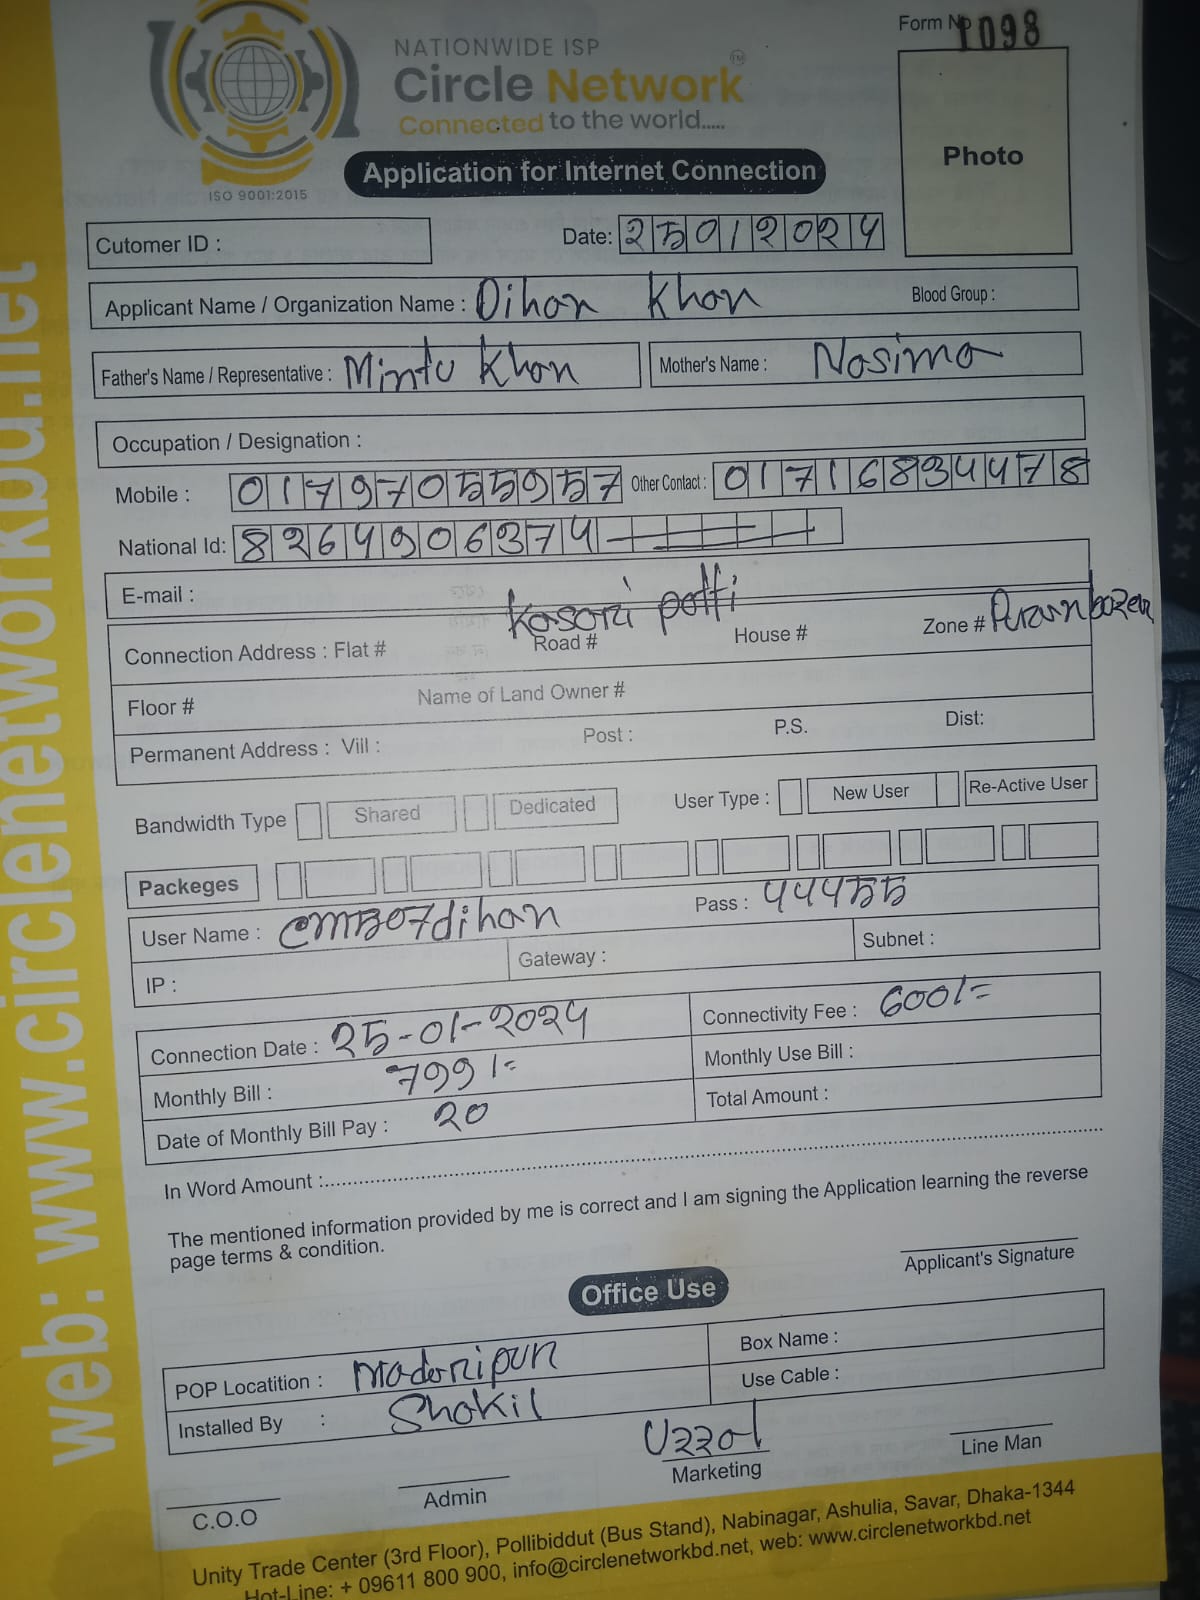 Form No 1098
NATIONWIDE ISP
Circle Network
TM
Connected to the world.....
ISO 9001:2015
Application for Internet Connection
Photo
Cutomer ID :
Date: 25012024
Applicant Name / Organization Name : Dihan Khan Blood Group :
Father's Name / Representative : Mintu Khan Mother's Name : Nasima
Occupation / Designation :
Mobile : 01797055957 Other Contact : 01716834478
National Id: 8264906374
E-mail :
Kasari potti
Connection Address : Flat # Road # House # Zone # Puranbazar
Floor # Name of Land Owner #
Permanent Address : Vill : Post : P.S. Dist:
Bandwidth Type Shared Dedicated User Type : New User Re-Active User
Packeges
User Name : CMB07dihan Pass : 444555
IP : Gateway : Subnet :
Connection Date : 25-01-2024 Connectivity Fee : 600/=
Monthly Bill : 799/- Monthly Use Bill :
Date of Monthly Bill Pay : 20 Total Amount :
In Word Amount :
The mentioned information provided by me is correct and I am signing the Application learning the reverse
page terms & condition.
Applicant's Signature
Office Use
POP Locatition : Madaripur Box Name :
Installed By : Shakil Use Cable :
Uzzal
C.O.O Admin Marketing Line Man
Unity Trade Center (3rd Floor), Pollibiddut (Bus Stand), Nabinagar, Ashulia, Savar, Dhaka-1344
Hot-Line: + 09611 800 900, info@circlenetworkbd.net, web: www.circlenetworkbd.net
web: www.circlenetworkbd.net